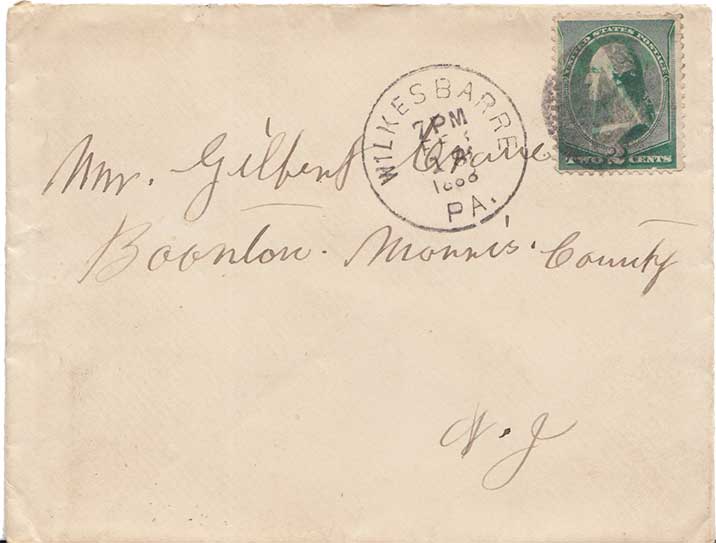 UNITED STATES POSTAGE
TWO 2 CENTS
WILKES BARRE
7 PM
1888
PA.
Mr. Gilbert Crane
Boonton. Morris. County
N. J